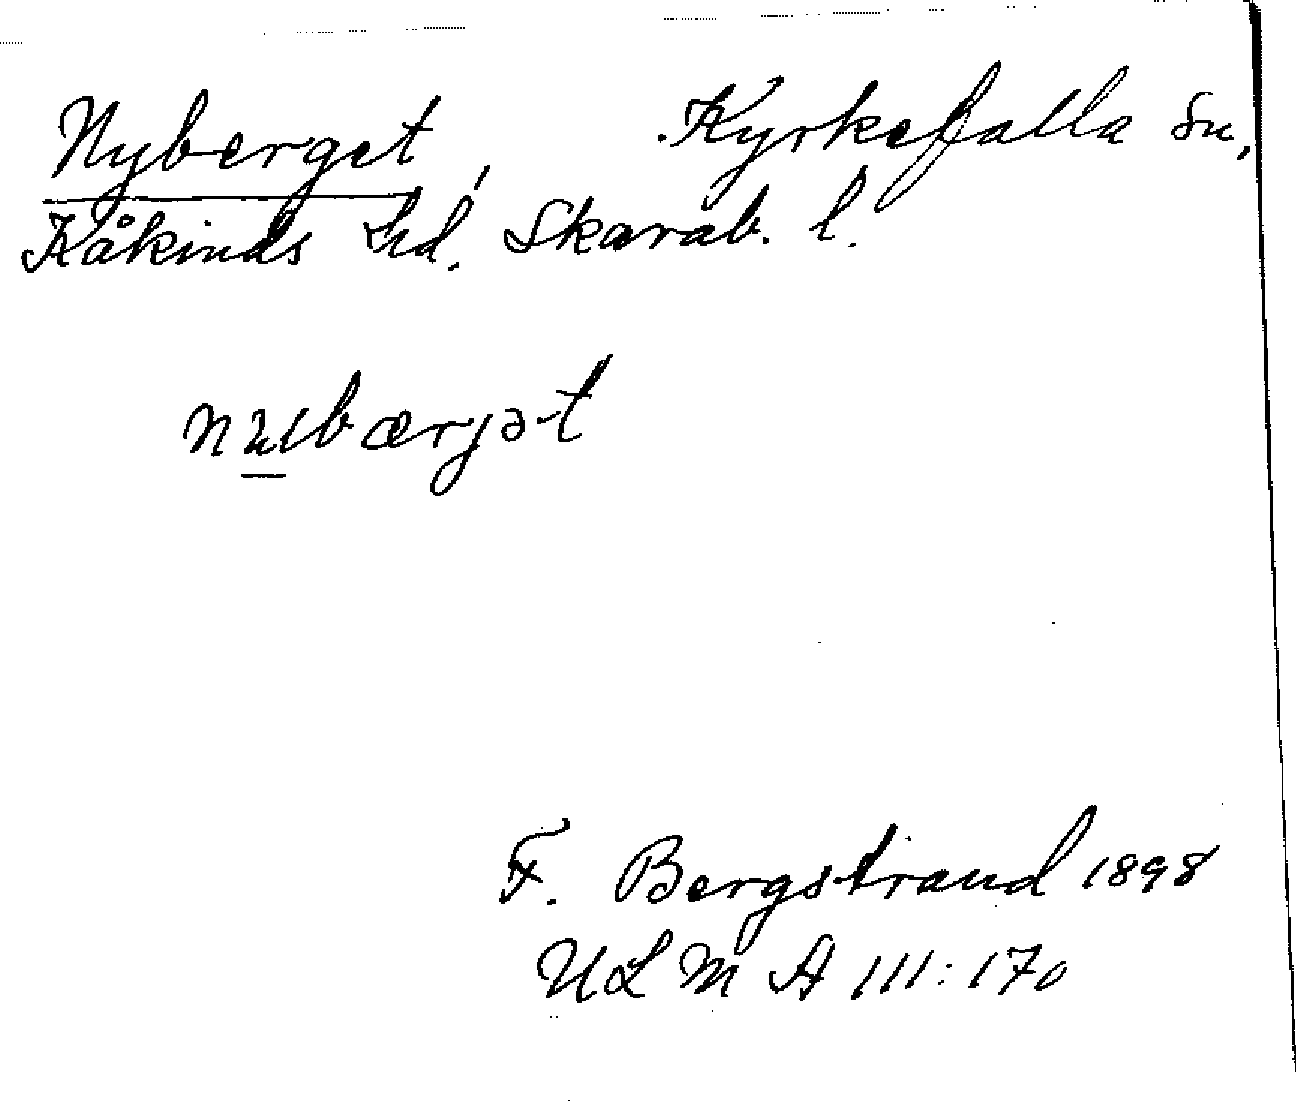 Nyberget, Kyrkefalla Sn,
Kåkinds hd. Skarab. l.
nʉbærjət
F. Bergstrand 1898
ULMA 111:170